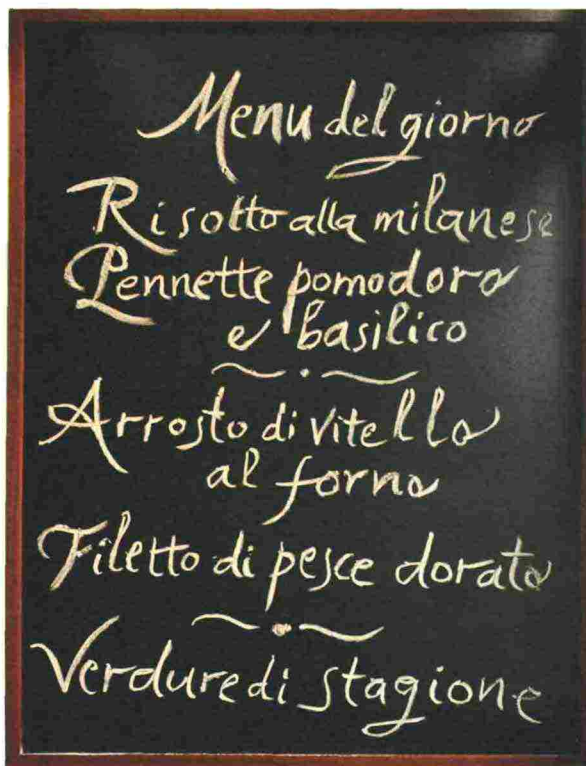 Menu del giorno
Risotto alla milanese
Pennette pomodoro
e basilico
Arrosto di vitello
al forno
Filetto di pesce dorato
Verdure di stagione